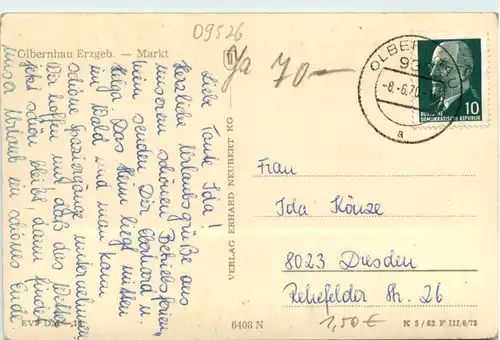 09526
Olbernhau Erzgeb. — Markt
Ja 70—
Liebe Tante Ida!
Herzliche Urlaubsgrüße aus
unserem schönen Betriebsferien-
heim senden Dir Eberhard u.
Helga. Das Heim liegt mitten
im Wald und man kann
schöne Spaziergänge unternehmen.
Wir hoffen nur, daß das Wetter
jetzt schön bleibt, dann findet
unser Urlaub ein schönes Ende
VERLAG ERHARD NEUBERT KG
OLBERNHAU
-8.-6.70
a
10
DEUTSCHE
DEMOKRATISCHE REPUBLIK
Frau
Ida Könze
8023 Dresden
Rehefelder Str. 26
6408 N
1,50 €
K 5/62 F III 6/75